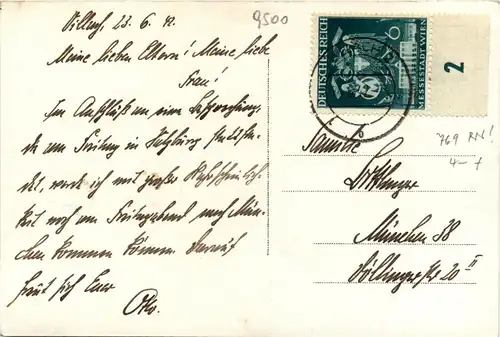 Villach, 23. 6. 42.
9500
Meine lieben Eltern! Meine liebe
Frau!
Im Anschluß an eine
die am Freitag in Salzburg stattfin-
det, werde ich mit großer Wahrscheinlich-
keit noch am Freitagabend nach Mün-
chen kommen können. Darauf
freut sich Euer
Otto.
DEUTSCHES REICH
6
MESSESTADT WIEN
2
769 RN!
4-
Familie
München 38
20 II